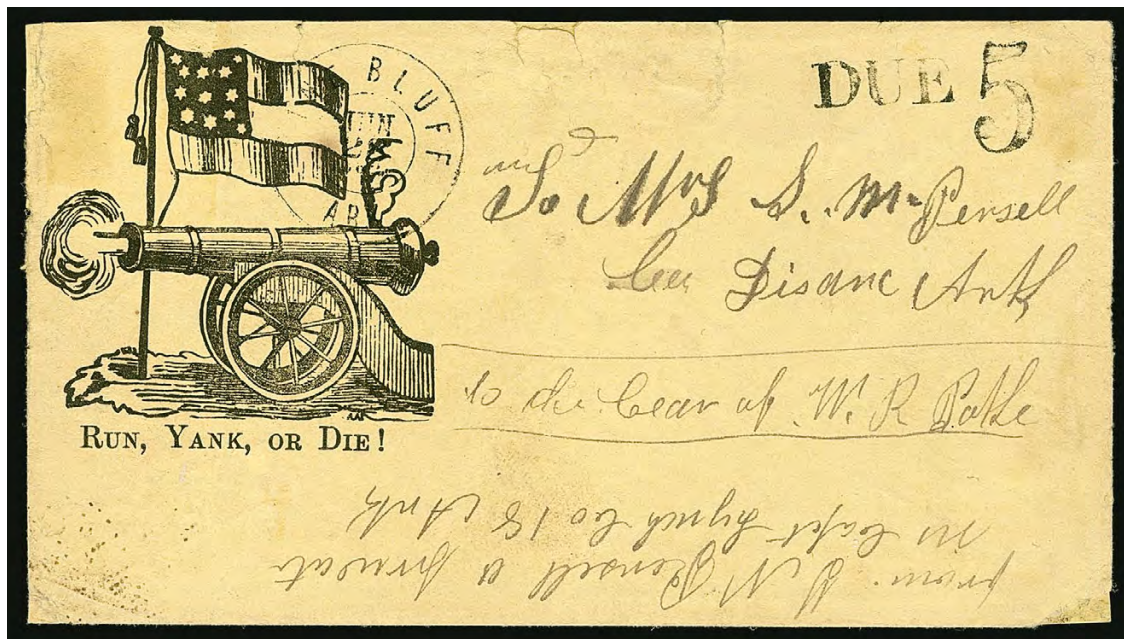 BLUFF
JUN
AR
DUE 5
To Mrs S. M. Pensell
Eu Disare Ark
to the Cear of W. R Pathe
RUN, YANK, OR DIE!
from S N Pensell a privat
in Capt Lynch Co 18 Ark